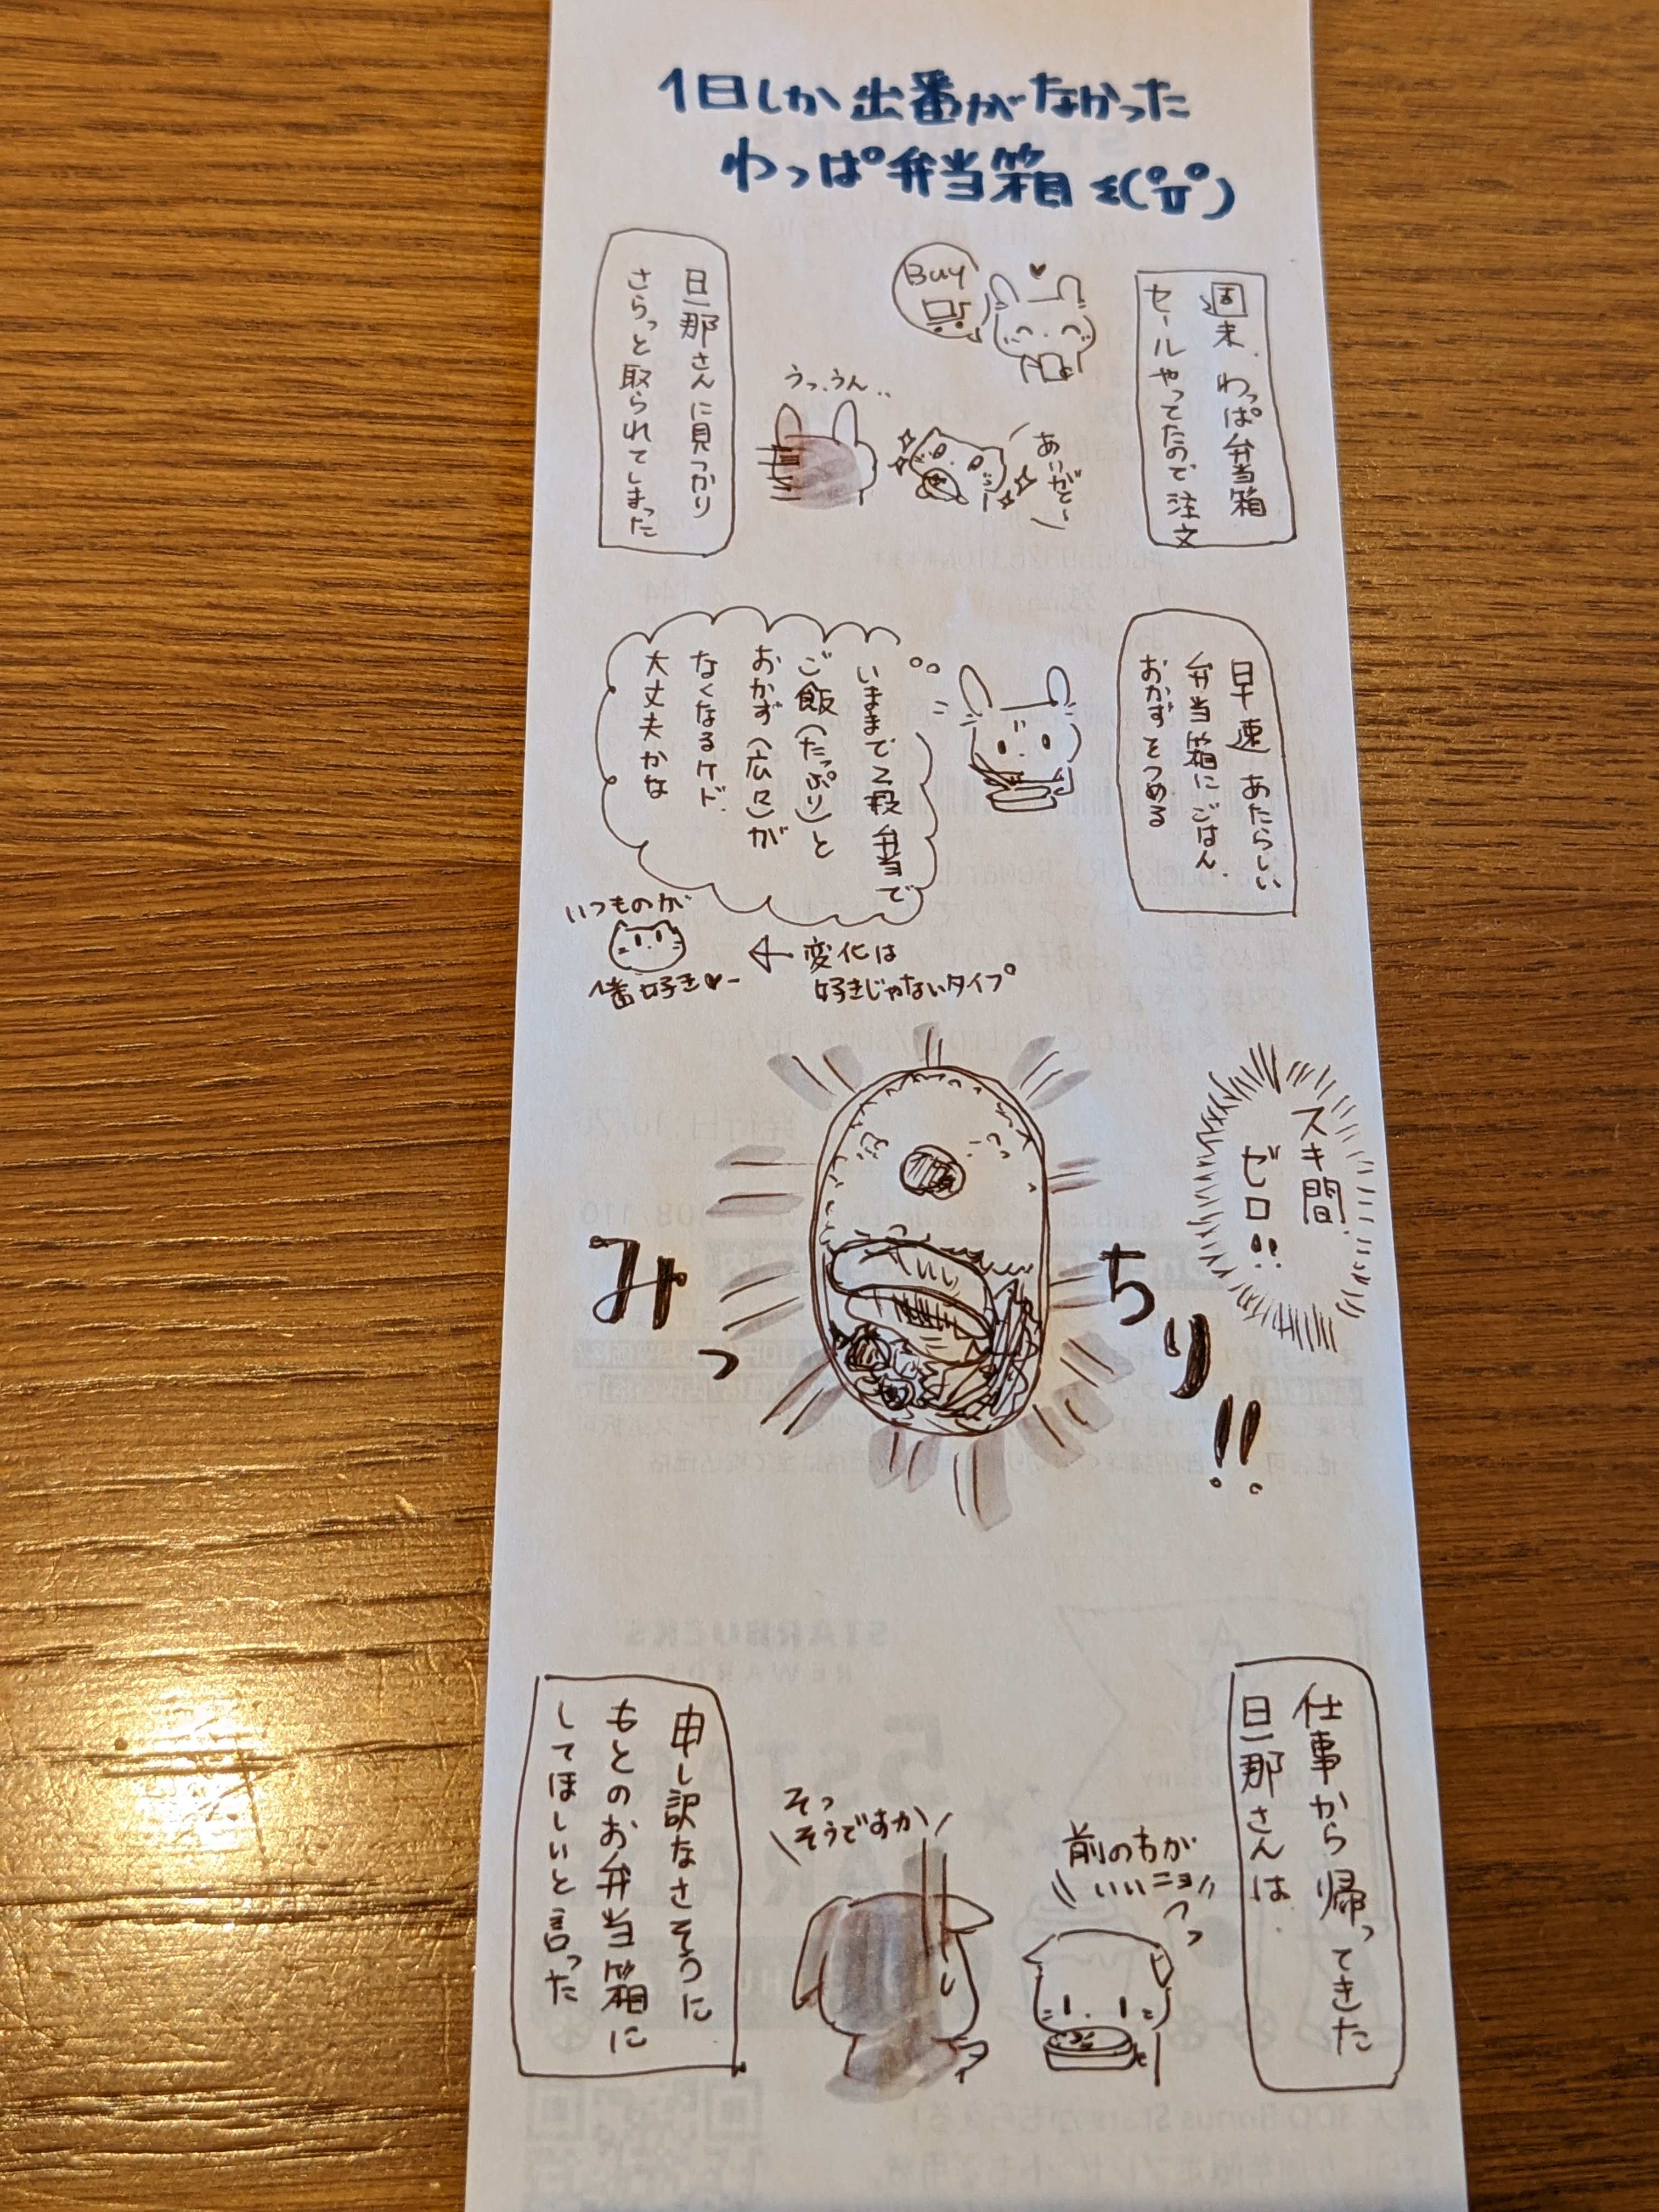 1日しか出番がなかった
わっぱ弁当箱 Σ(ﾟДﾟ)
週末、わっぱ弁当箱
セールやってたので注文
Buy
ありがと〜
うっ、うん‥
旦那さんに見つかり
さらっと取られてしまった
早速 あたらしい
弁当箱にごはん、
おかずをつめる
いままで2段弁当で
ご飯(たっぷり)と
おかず(広口)が
なくなるケド、
大丈夫かな
変化は
好きじゃないタイプ
いつものが
1番好き♥ー
スキ間
ゼロ!!
みっ
ちり!!
仕事から帰ってきた
旦那さんは、
前の方が
いいニョ
そっ
そうですか
申し訳なさそうに
もとのお弁当箱に
してほしいと言った